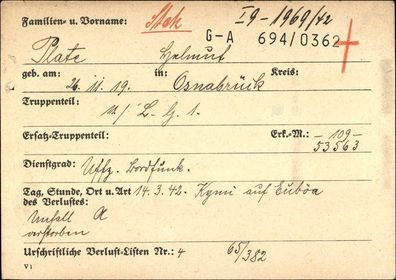 Familien- u. Vorname: Stek I9-1969/42
G-A 694/0362
Plate Helmut
geb. am: 26. 11. 19. in: Osnabrück Kreis:
Truppenteil: 12/ L. G. 1.
Ersatz-Truppenteil: Erk.-M.: -109-
53563
Dienstgrad: Uffz. Bordfunk.
Tag, Stunde, Ort u. Art 14. 3. 42. Kymi auf Euböa
des Verlustes:
Unfall A
verstorben
Urschriftliche Verlust-Listen Nr.: 4 65/382
V1